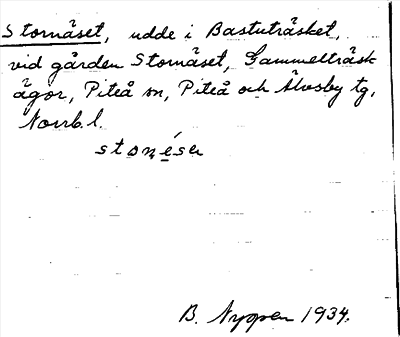 Stornäset, udde i Bastuträsket,
vid gården Stornäset, Gammelträsk
ägor, Piteå sn, Piteå och Älvsby tg,
Norrb. l.
stornésa
B. Nygren 1934.